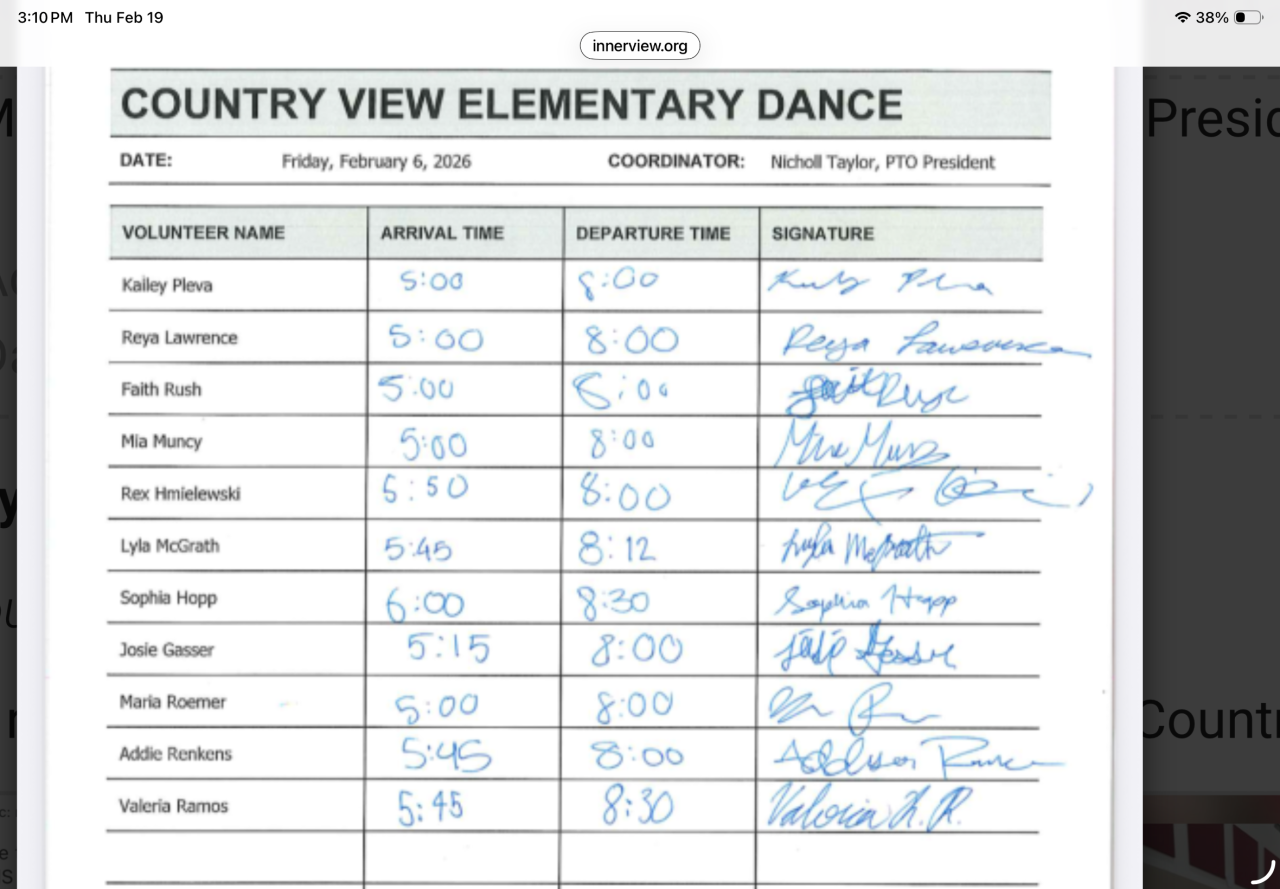 3:10 PM Thu Feb 19 38%
innerview.org
COUNTRY VIEW ELEMENTARY DANCE
DATE: Friday, February 6, 2026 COORDINATOR: Nicholl Taylor, PTO President
VOLUNTEER NAME ARRIVAL TIME DEPARTURE TIME SIGNATURE
Kailey Pleva 5:00 8:00
Reya Lawrence 5:00 8:00 Reya
Faith Rush 5:00 8:00 Faith Rush
Mia Muncy 5:00 8:00 Mia
Rex Hmielewski 5:50 8:00
Lyla McGrath 5:45 8:12 Lyla McGrath
Sophia Hopp 6:00 8:30 Sophia Hopp
Josie Gasser 5:15 8:00 Josie Gasser
Maria Roemer 5:00 8:00
Addie Renkens 5:45 8:00 Addison
Valeria Ramos 5:45 8:30 Valeria R. R.
Presi
Count